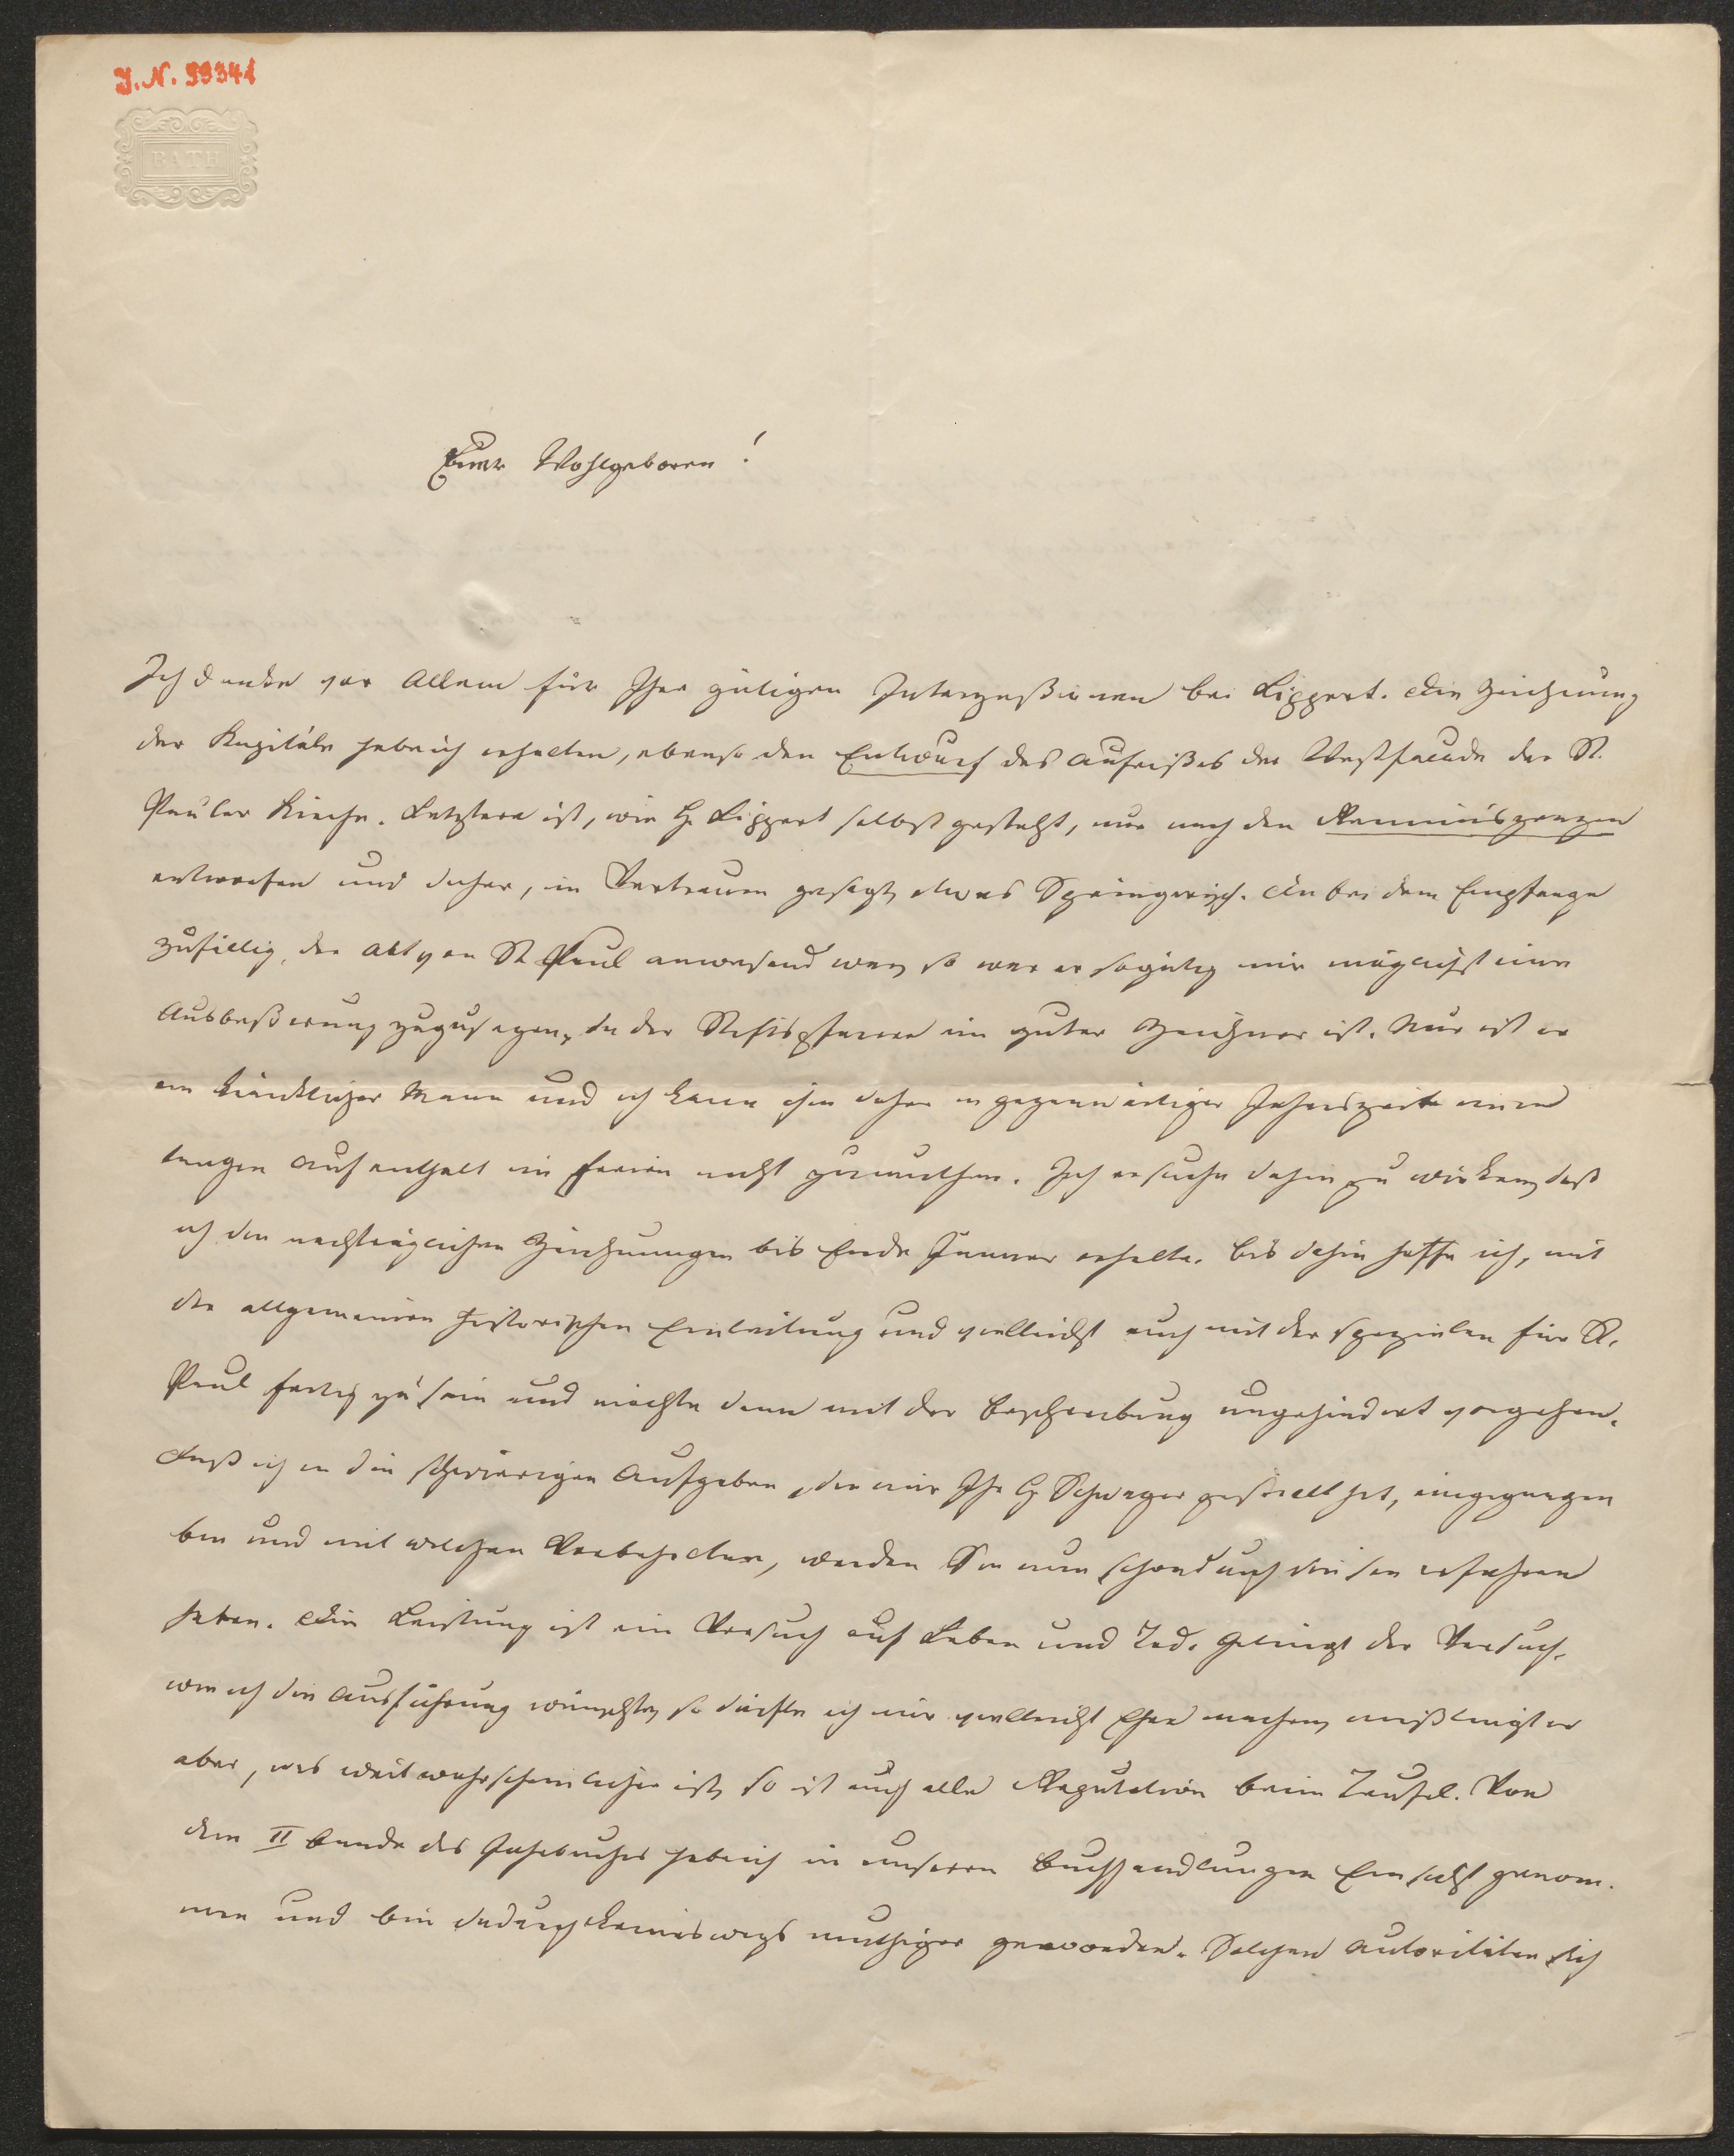 J.N. 99341
BATH
Euer Wohlgeboren!
Ich danke vor Allem für Ihre gütigen Interzeßionen bei Lippert. Die Zeichnung
der Kapitäle habe ich erhalten, ebenso den Entwurf des Aufrißes der Westfacade der St.
Pauler Kirche. Letztere ist, wie H. Lippert selbst gesteht, nur nach den Reminiszenzen
entworfen und daher, im Vertrauen gesagt, etwas Springerisch. Da bei dem Empfange
zufällig der Abt von St. Paul anwesend war, so war er so gütig mir möglichst eine
Ausbeßerung zuzusagen, da der Stiftspfarrer ein guter Zeichner ist. Nur ist er
ein kränklicher Mann und ich kann ihm daher in gegenwärtiger Jahreszeit einen
langen Aufenthalt im Freien nicht zumuthen. Ich ersuche dahin zu wirken, daß
ich die nachträglichen Zeichnungen bis Ende Jänner erhalte. Bis dahin hoffe ich, mit
der allgemeinen historischen Einleitung und vielleicht auch mit der speziellen für St.
Paul fertig zu sein und möchte dann mit der Beschreibung ungehindert vorgehen.
Daß ich in die schwierigen Aufgaben, die mir Ihr H. Schwager gestellt hat, eingegangen
bin und mit welchen Vorbehalten, werden Sie nun schon durch diesen erfahren
haben. Die Leistung ist ein Versuch auf Leben und Tod. Gelingt der Versuch,
wie ich die Ausführung wünschte, so dürfte ich mir vielleicht Ehre machen, mißlingt er
aber, was weit wahrscheinlicher ist, so ist auch alle Reputation beim Teufel. Von
dem II Bande des Jahrbuches habe ich in unseren Buchhandlungen Einsicht genom-
men und bin dadurch keineswegs muthiger geworden. Solchen Autoritäten sich